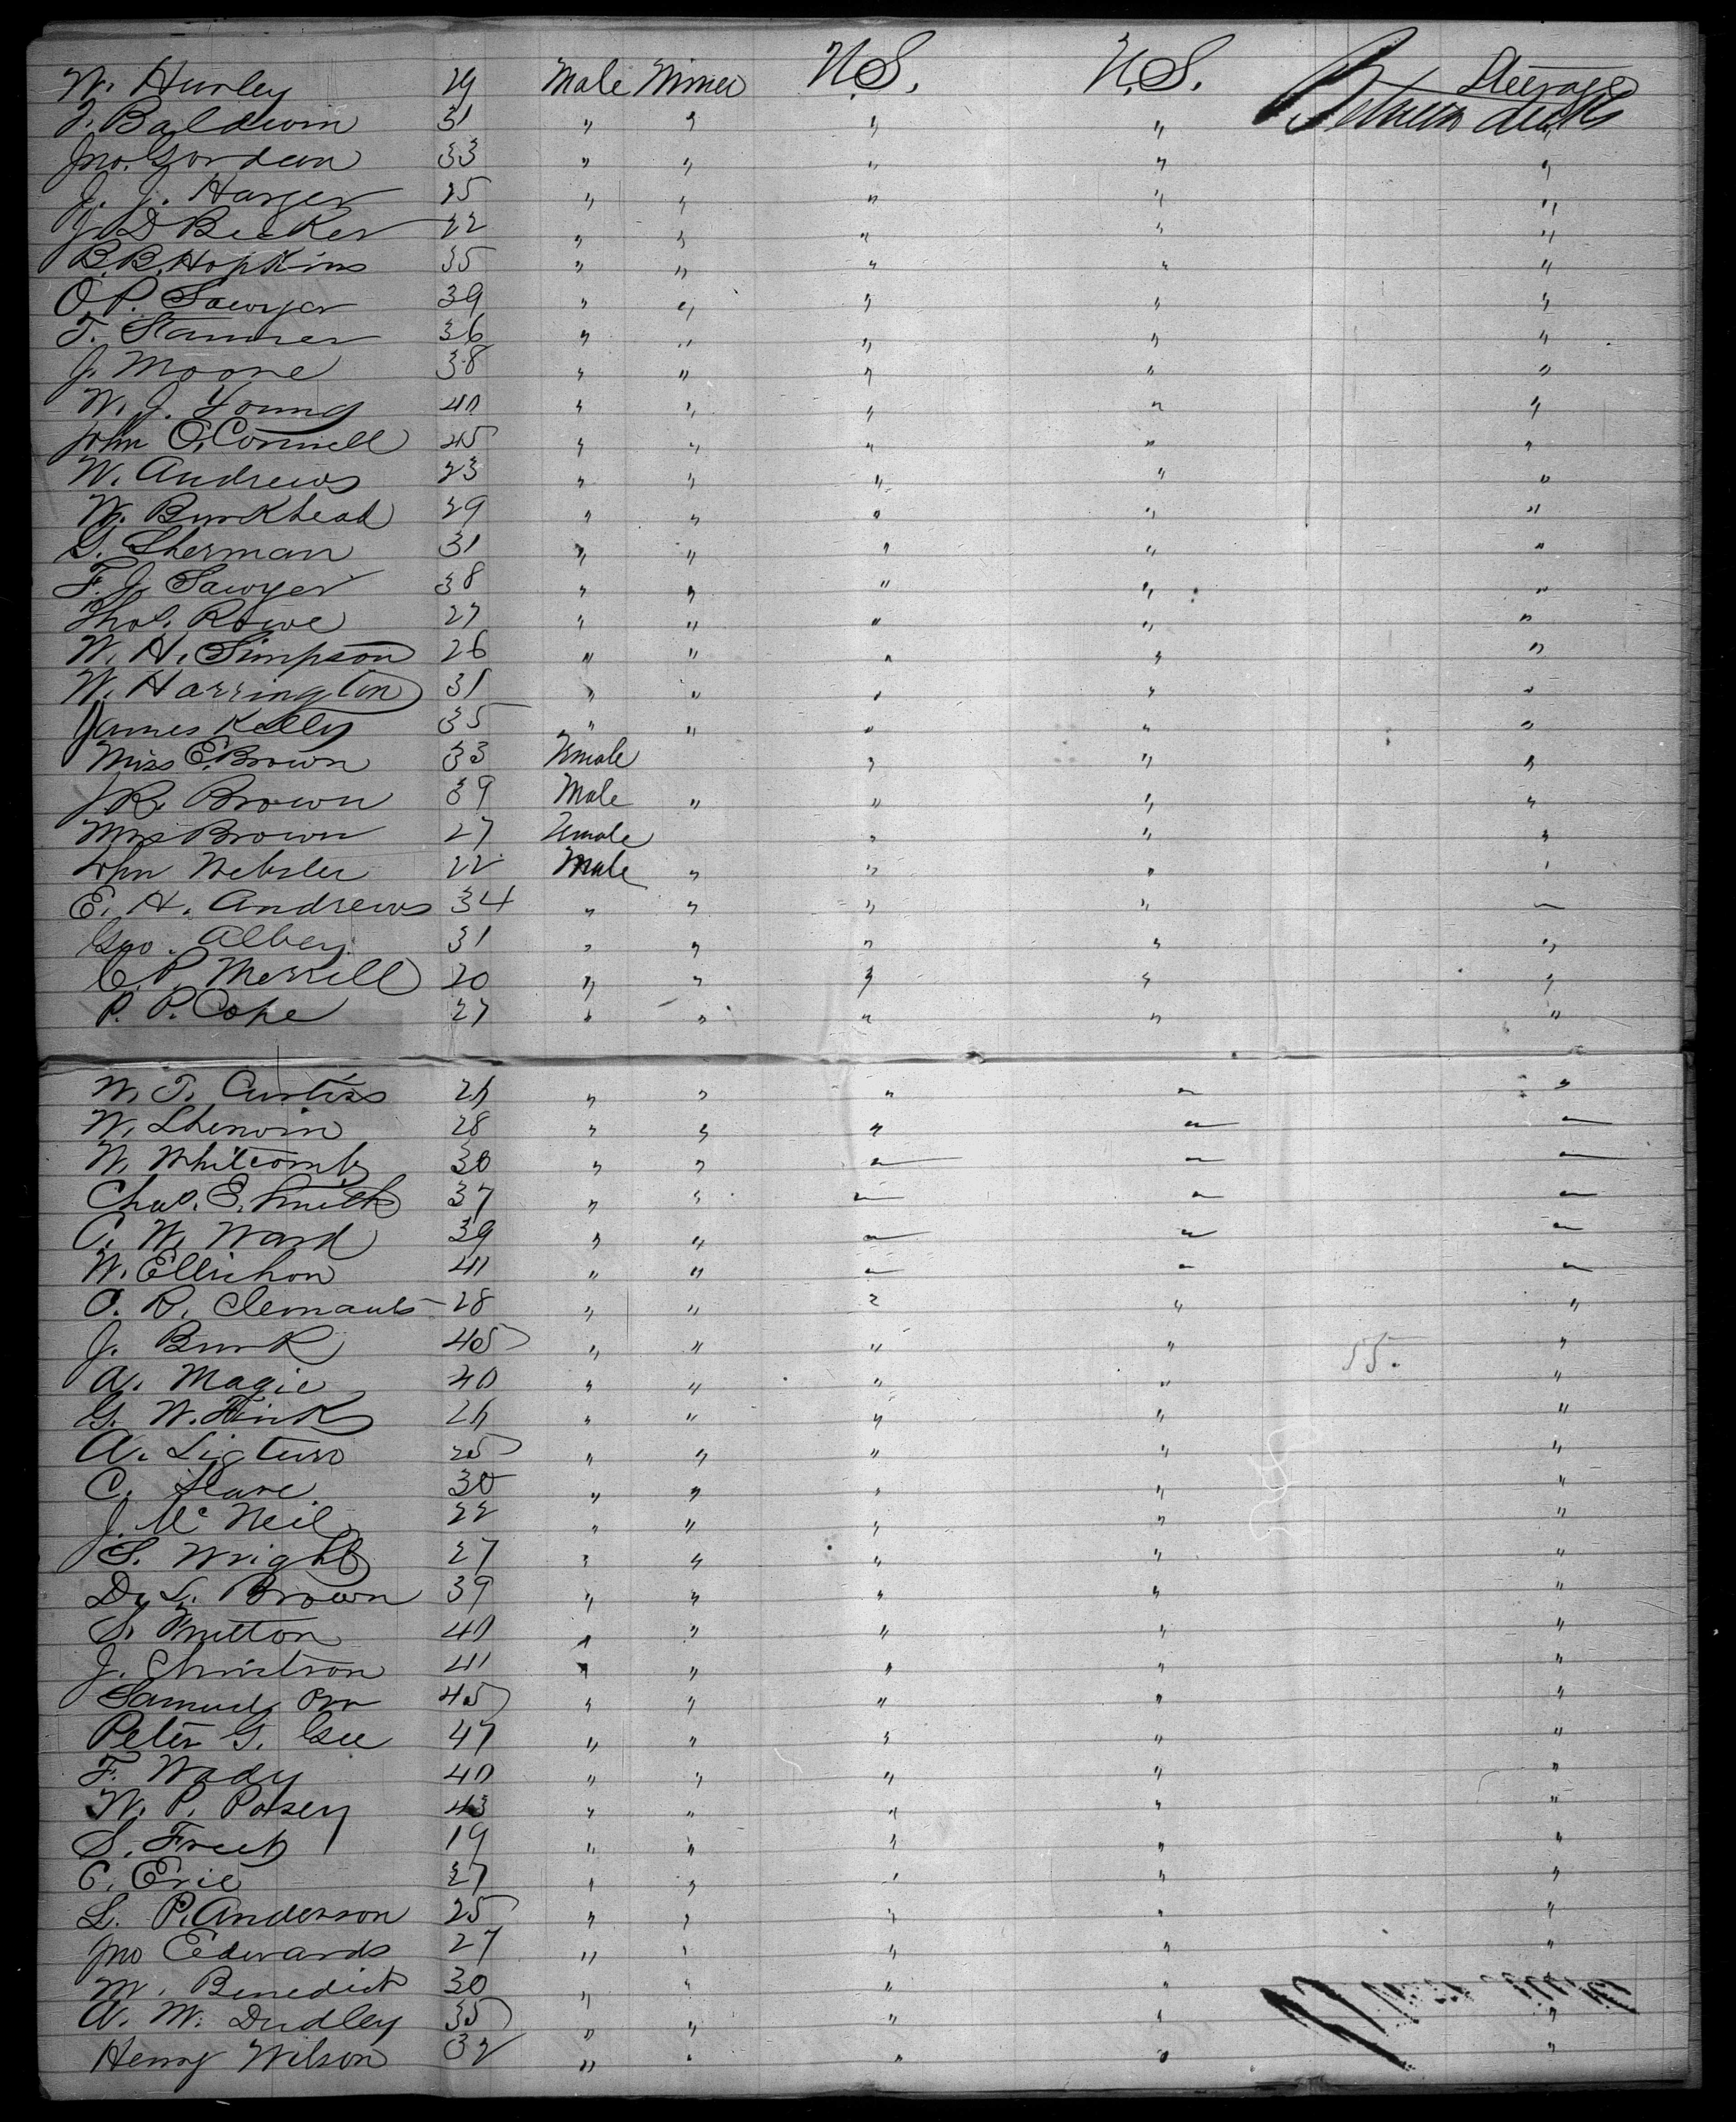 W. Hurley 29 Male Miner U.S. U.S. Steerage
Between decks
J. Baldwin 31 " " " " "
Jno. Gordean 33 " " " " "
J. J. Harger 25 " " " " "
J. D Becker 22 " " " " "
B. B. Hopkins 35 " " " " "
O. P. Sawyer 39 " " " " "
T. Stanner 36 " " " " "
J. Moore 38 " " " " "
W. J. Young 40 " " " " "
John O. Connell 45 " " " " "
W. Andrews 23 " " " " "
W. Burkhead 29 " " " " "
G. Sherman 31 " " " " "
F. J. Sawyer 38 " " " " "
Thos. Rowe 27 " " " " "
W. H. Simpson 26 " " " " "
W. Harrington 31 " " " " "
James Kelly 35 " " " " "
Miss E. Brown 33 Female " " "
J R. Brown 39 Male " " " "
Mrs Brown 27 Female " " "
John Webster 22 Male " " " "
E. H. Andrews 34 " " " " "
Geo. Albey 31 " " " " "
C. P. Merrill 20 " " " " "
P. P. Cope 27 " " " " "
W. T. Curtiss 26 " " " " "
W. Sherwin 28 " " " " "
W. Whitcomb 30 " " " " "
Chas. E. Smith 37 " " " " "
C. W. Ward 39 " " " " "
W. Ellichon 41 " " " " "
O. R. Clemants 28 " " " " "
J. Burk 45 " " " " "
55.
A. Magie 40 " " " " "
G. W. Fink 26 " " " " "
A. 25 " " " " "
C. Slave 30 " " " " "
J. Mc Neil 22 " " " " "
S. Wright 27 " " " " "
D. L. Brown 39 " " " " "
S. 40 " " " " "
J. 41 " " " " "
Samuel Orr 45 " " " " "
Peter G. Gee 47 " " " " "
F. Wady 40 " " " " "
W. P. Posey 43 " " " " "
S. 19 " " " " "
C. Erie 27 " " " " "
L. P. Anderson 25 " " " " "
Jno Edwards 27 " " " " "
M. Benedict 30 " " " " "
A. W. Dudley 35 " " " " "
Henry Wilson 32 " " " " "